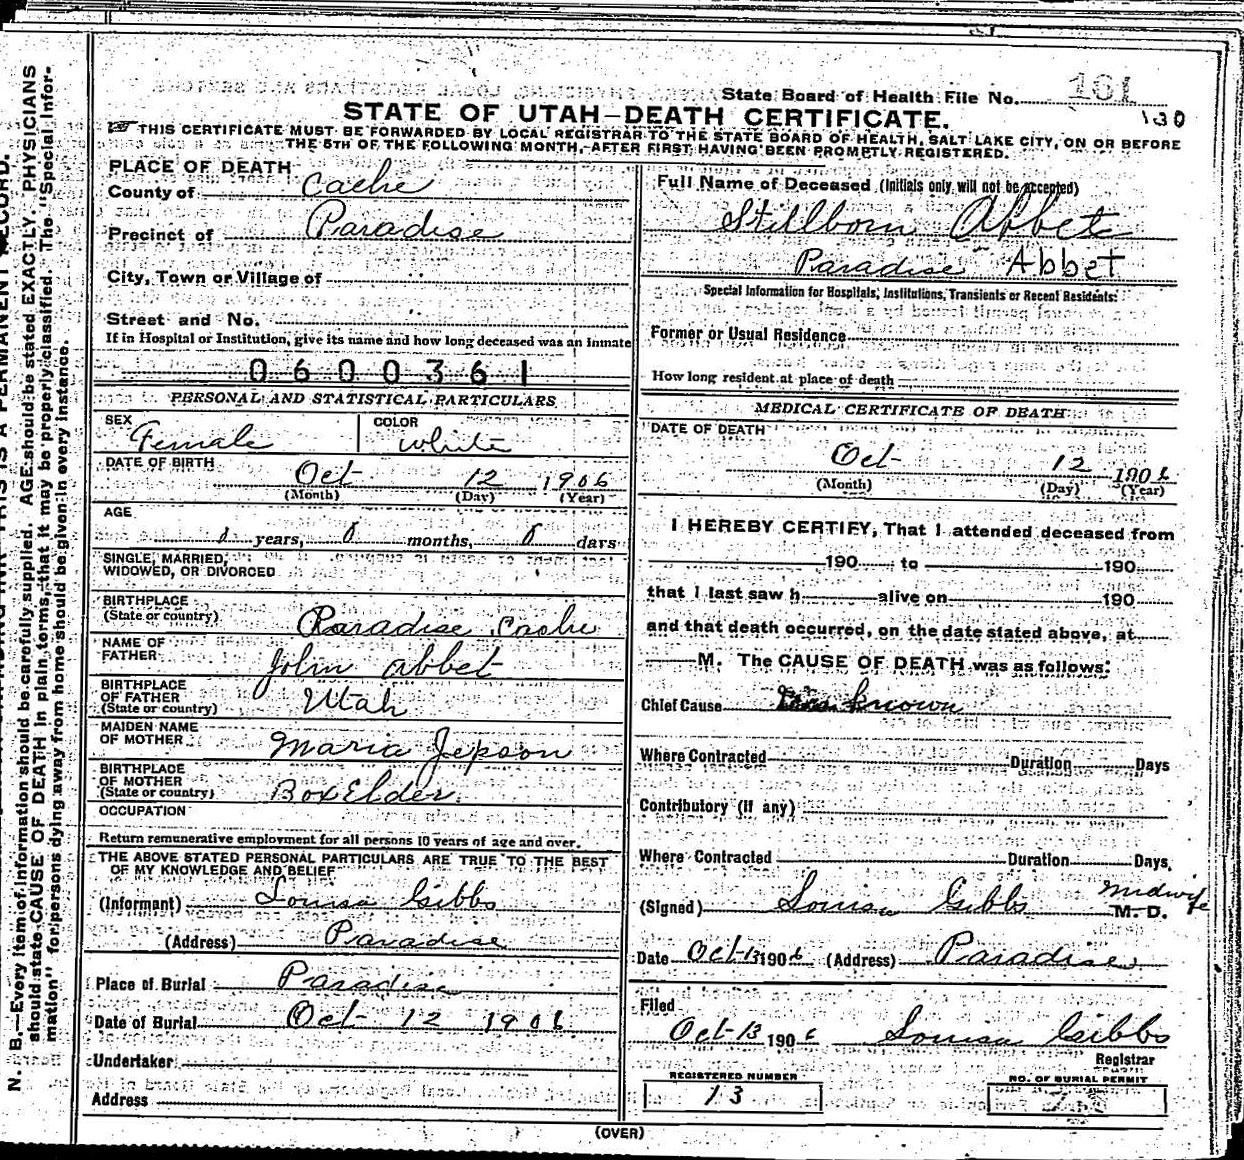 State Board of Health File No. 161
STATE OF UTAH—DEATH CERTIFICATE.
130
THIS CERTIFICATE MUST BE FORWARDED BY LOCAL REGISTRAR TO THE STATE BOARD OF HEALTH, SALT LAKE CITY, ON OR BEFORE
THE 5TH OF THE FOLLOWING MONTH, AFTER FIRST HAVING BEEN PROMPTLY REGISTERED.
PLACE OF DEATH
County of Cache
Precinct of Paradise
City, Town or Village of
Street and No.
If in Hospital or Institution, give its name and how long deceased was an inmate
0600361
PERSONAL AND STATISTICAL PARTICULARS
SEX Female COLOR white
DATE OF BIRTH Oct 12 1906
(Month) (Day) (Year)
AGE
0 years, 0 months, 0 days
SINGLE, MARRIED,
WIDOWED, OR DIVORCED
BIRTHPLACE
(State or country) Paradise Cache
NAME OF
FATHER John Abbet
BIRTHPLACE
OF FATHER
(State or country) Utah
MAIDEN NAME
OF MOTHER Maria Jepson
BIRTHPLACE
OF MOTHER
(State or country) Box Elder
OCCUPATION
Return remunerative employment for all persons 10 years of age and over.
THE ABOVE STATED PERSONAL PARTICULARS ARE TRUE TO THE BEST
OF MY KNOWLEDGE AND BELIEF
(Informant) Louisa Gibbs
(Address) Paradise
Place of Burial Paradise
Date of Burial Oct 12 1906
Undertaker
Address
Full Name of Deceased (Initials only will not be accepted)
Stillborn Abbet
Paradise Abbet
Special Information for Hospitals, Institutions, Transients or Recent Residents:
Former or Usual Residence
How long resident at place of death
MEDICAL CERTIFICATE OF DEATH
DATE OF DEATH
Oct 12 1906
(Month) (Day) (Year)
I HEREBY CERTIFY, That I attended deceased from
190 to 190
that I last saw h alive on 190
and that death occurred, on the date stated above, at
M. The CAUSE OF DEATH was as follows:
Chief Cause Unknown
Where Contracted Duration Days
Contributory (If any)
Where Contracted Duration Days,
(Signed) Louisa Gibbs Midwife M. D.
Date Oct 13 1906 (Address) Paradise
Filed
Oct 13 1906 Louisa Gibbs
Registrar
REGISTERED NUMBER
13
NO. OF BURIAL PERMIT
(OVER)
N. B.—Every item of information should be carefully supplied. AGE should be stated EXACTLY. PHYSICIANS
should state CAUSE OF DEATH in plain terms, that it may be properly classified. The "Special Infor-
mation" for persons dying away from home should be given in every instance.